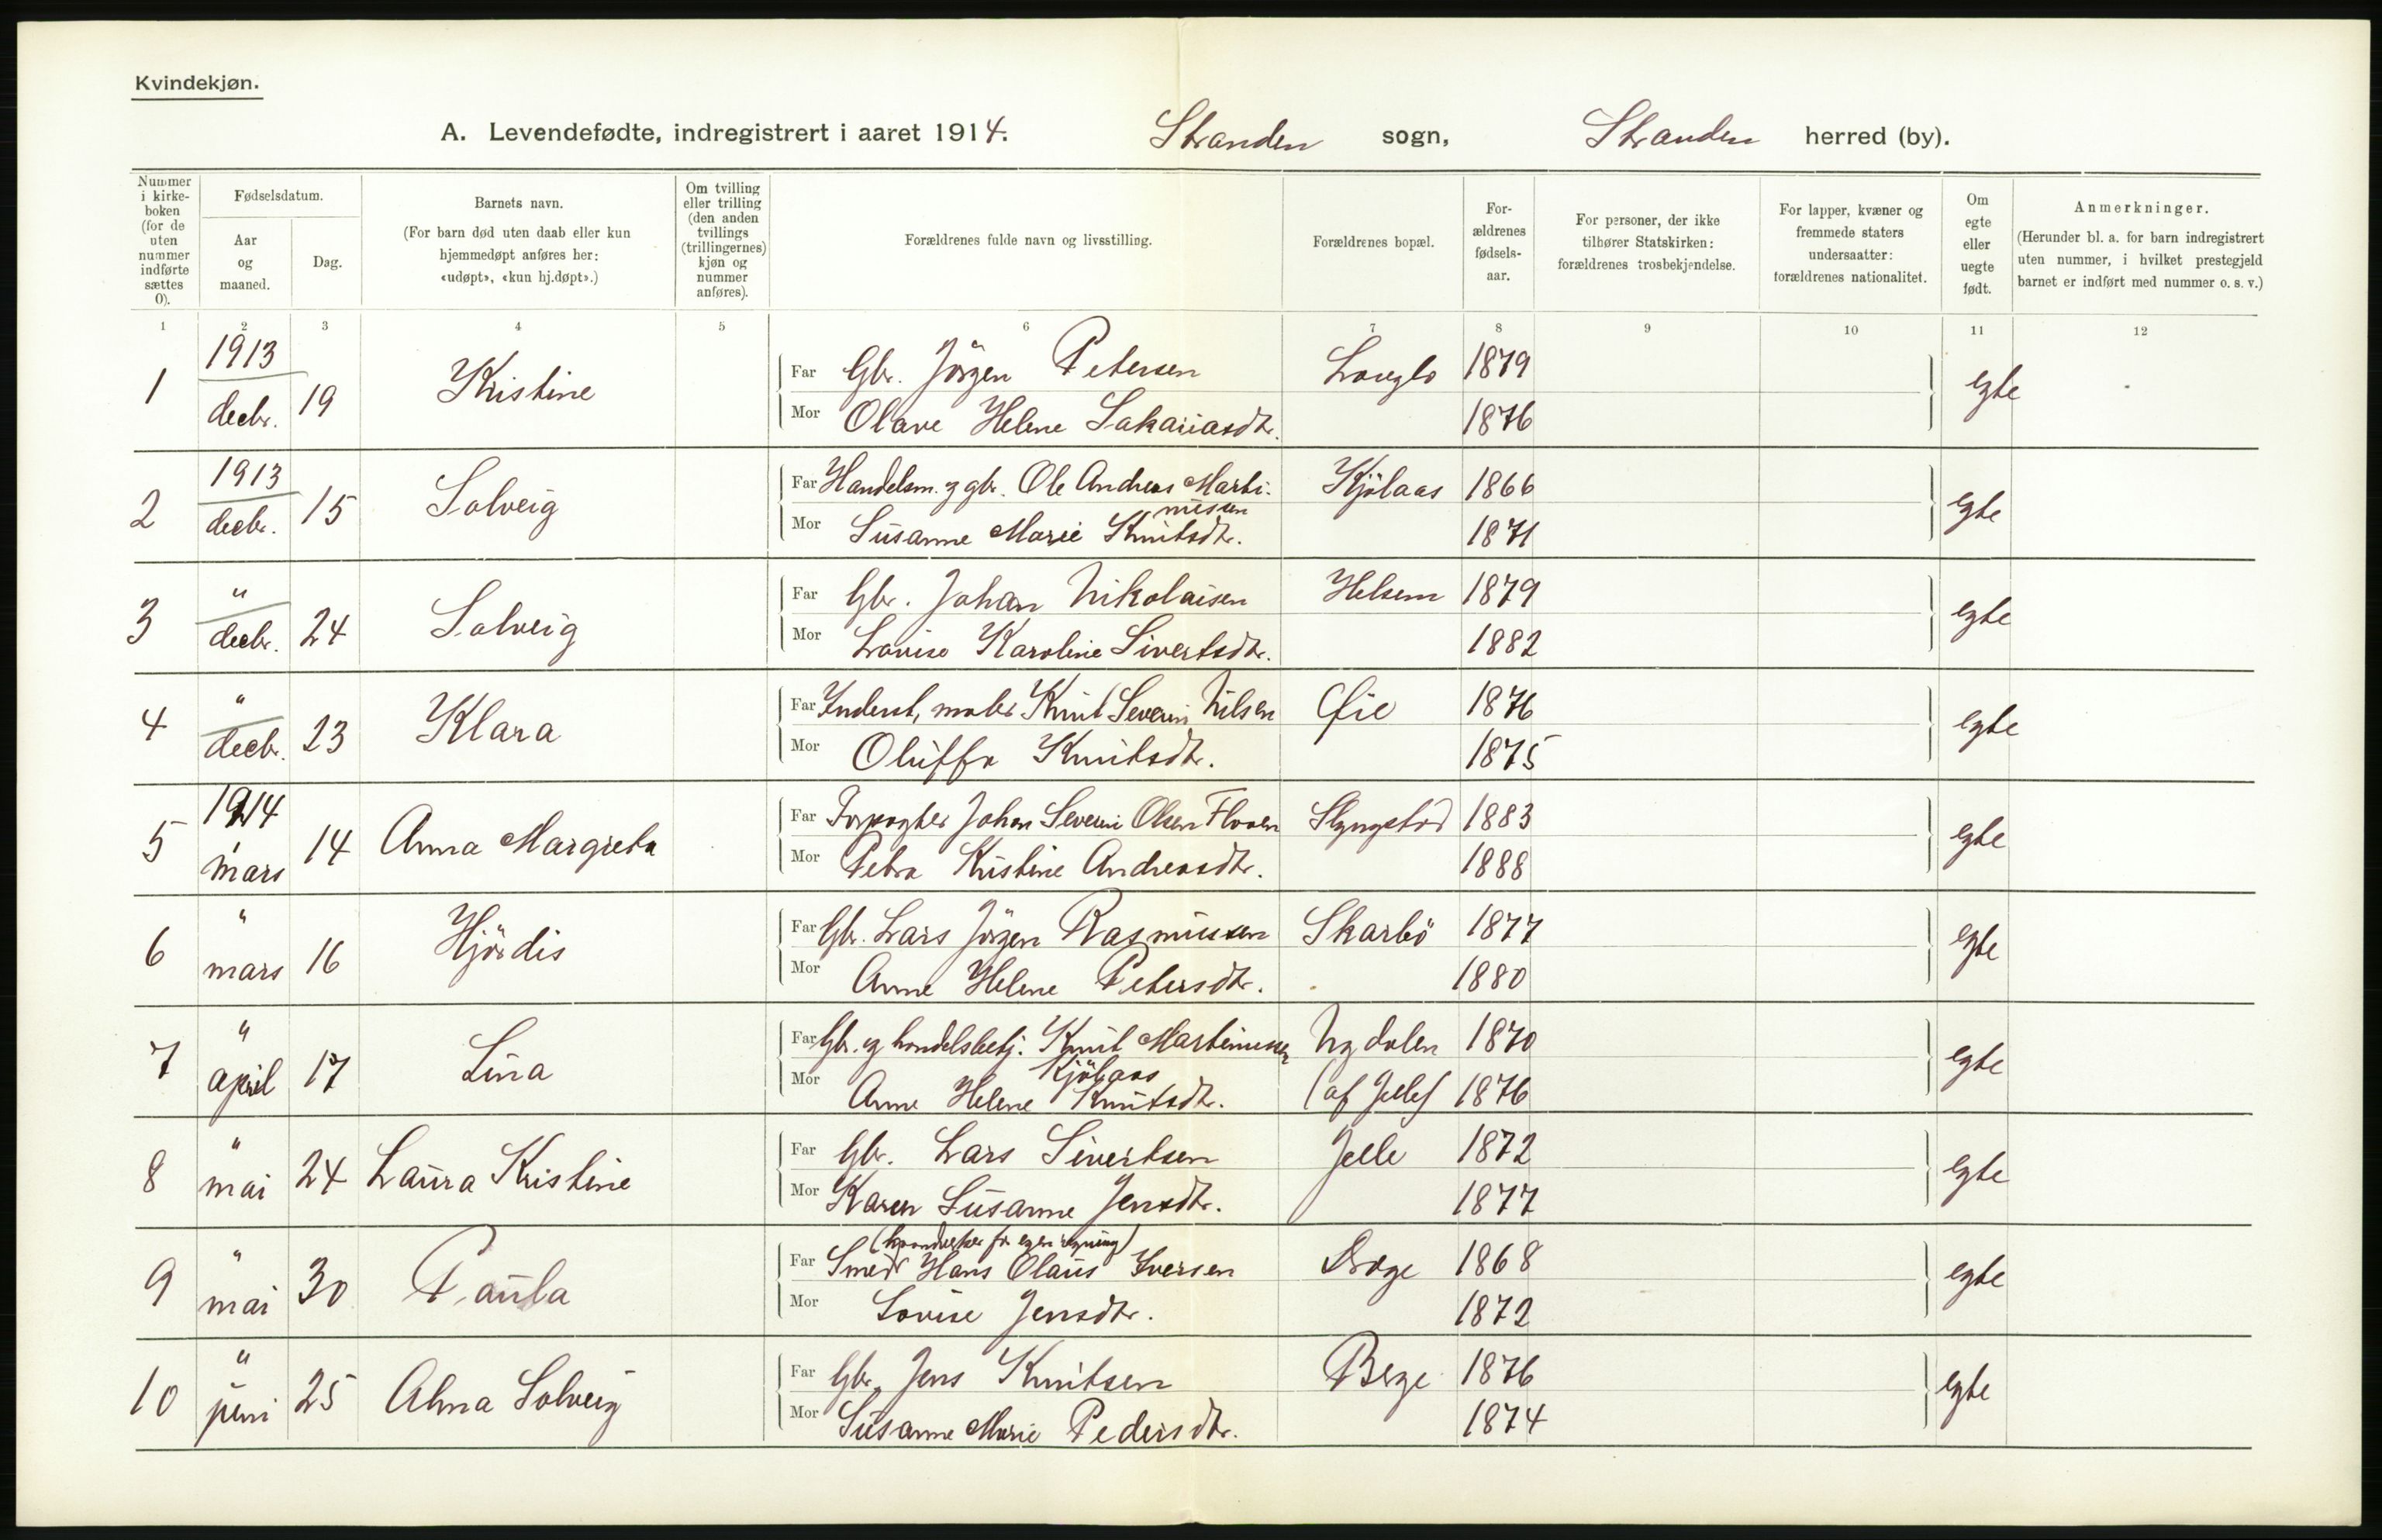 Kvindekjøn.
A. Levendefødte, indregistrert i aaret 1914. Stranden sogn, Stranden herred (by).
Nummer i kirkeboken (for de uten nummer indførte sættes 0).
Fødselsdatum.
Aar og maaned.
Dag.
Barnets navn.
(For barn død uten daab eller kun hjemmedøpt anføres her: «udøpt», «kun hj.døpt».)
Om tvilling eller trilling (den anden tvillings (trillingernes) kjøn og nummer anføres).
Forældrenes fulde navn og livsstilling.
Forældrenes bopæl.
Forældrenes fødselsaar.
For personer, der ikke tilhører Statskirken: forældrenes trosbekjendelse.
For lapper, kvæner og fremmede staters undersaatter: forældrenes nationalitet.
Om egte eller uegte født.
Anmerkninger.
(Herunder bl. a. for barn indregistrert uten nummer, i hvilket prestegjeld barnet er indført med nummer o. s. v.)
1 2 3 4 5 6 7 8 9 10 11 12
1 1913 decbr. 19 Kristine
Far Gbr. Jörgen Petersen 1879 egte
Mor Olave Helene Sakariasdtr. 1876
2 1913 decbr. 15 Solveig
Far Handelsm. og gbr. Ole Andreas Martinusen Kjölaas 1866 egte
Mor Susanne Marie Knutsdtr. 1871
3 " decbr. 24 Solveig
Far Gbr. Johan Nikolaisen Helsem 1879 egte
Mor Lovise Karoline Sivertsdtr. 1882
4 " decbr. 23 Klara
Far Inderst, maler Knut Severin Nilsen Øie 1876 egte
Mor Oluffa Knutsdtr. 1875
5 1914 mars 14 Anna Margreta
Far Forpagter Johan Severin Olsen Floen Slyngstad 1883 egte
Mor Petra Kristine Andreasdtr. 1888
6 " mars 16 Hjördis
Far Gbr. Lars Jörgen Rasmussen Skarbö 1877 egte
Mor Anne Helene Petersdtr. 1880
7 " april 17 Lina
Far Gbr. og handelsbetj. Knut Martinussen Kjölaas Nydalen 1870 egte
Mor Anne Helene Knutsdtr. (af Jelle) 1876
8 " mai 24 Laura Kristine
Far Gbr. Lars Sivertsen Jelle 1872 egte
Mor Karen Susanne Jensdtr. 1877
9 " mai 30 Paula
(haandverker for egen regning)
Far Smed Hans Olaus Iversen 1868 egte
Mor Lovise Jensdtr. 1872
10 " juni 25 Alma Solveig
Far Gbr. Jens Knutsen Berge 1876 egte
Mor Susanne Marie Pedersdtr. 1874